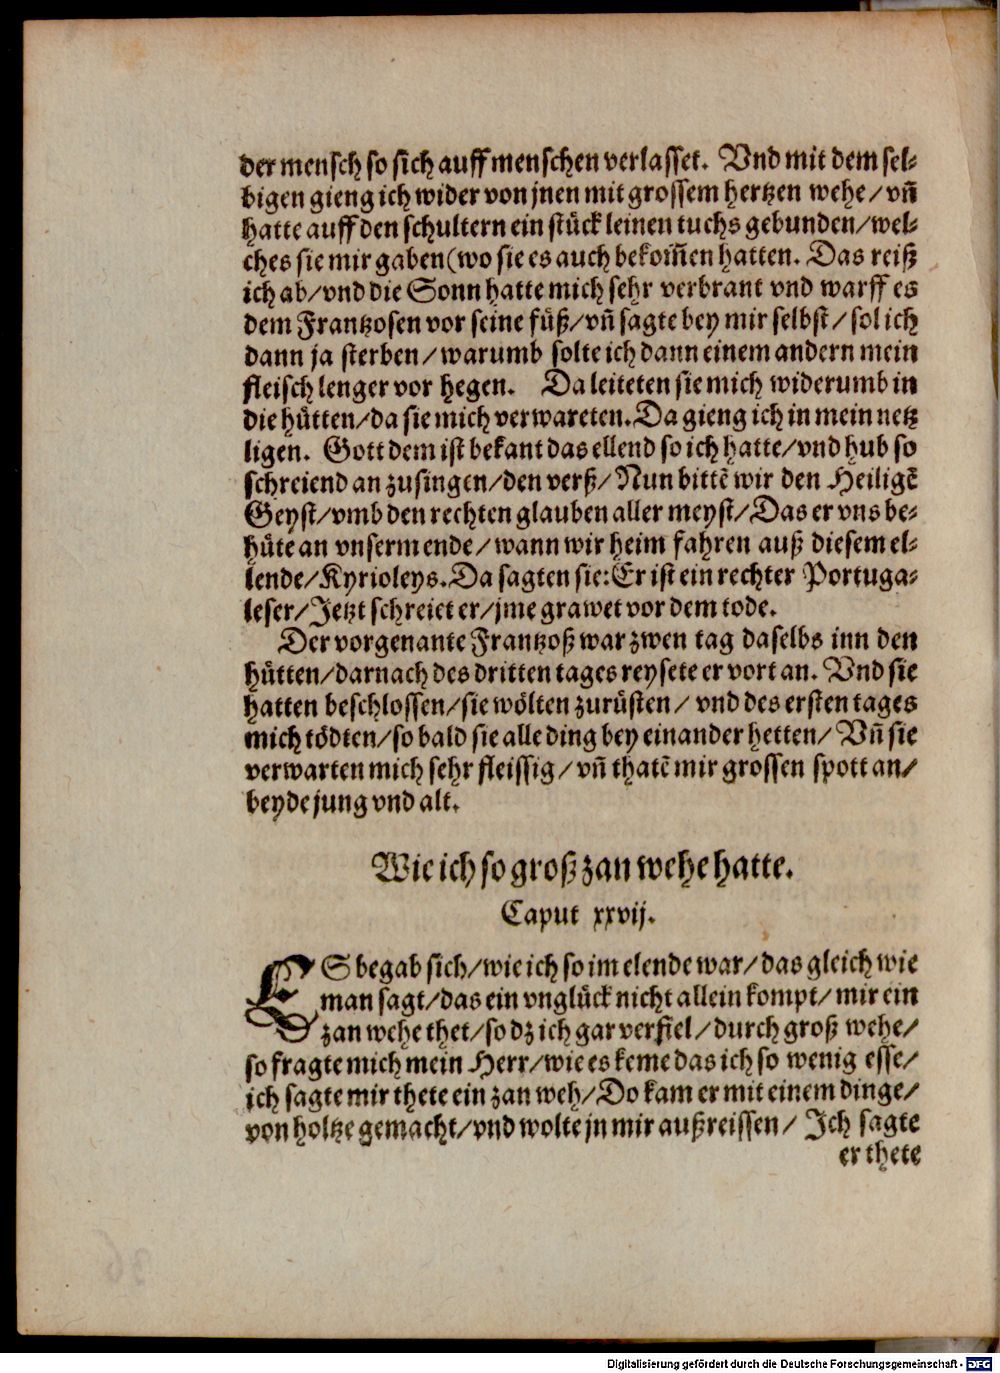 der mensch so sich auff menschen verlasset. Vnd mit dem sel⸗
bigen gieng ich wider von jnen mit grossem hertzen wehe/ vn̄
hatte auff den schultern ein stück leinen tuchs gebunden/ wel⸗
ches sie mir gaben (wo sie es auch bekom̄en hatten. Das reiß
ich ab/ vnd die Sonn hatte mich sehr verbrant vnd warff es
dem Frantzosen vor seine füß/ vn̄ sagte bey mir selbst/ sol ich
dann ja sterben/ warumb solte ich dann einem andern mein
fleisch lenger vor hegen. Da leiteten sie mich widerumb in
die hütten/ da sie mich verwareten. Da gieng ich in mein netz
ligen. Gott dem ist bekant das ellend so ich hatte/ vnd hub so
schreiend an zusingen/ den verß/ Nun bittē wir den Heiligē
Geyst/ vmb den rechten glauben aller meyst/ Das er vns be⸗
hüte an vnserm ende/ wann wir heim fahren auß diesem el⸗
lende/ Kyrioleys. Da sagten sie: Er ist ein rechter Portuga⸗
leser/ Jetzt schreiet er/ jme grawet vor dem tode.
Der vorgenante Frantzoß war zwen tag daselbs inn den
hütten/ darnach des dritten tages reysete er vort an. Vnd sie
hatten beschlossen/ sie wölten zurüsten/ vnd des ersten tages
mich tödten/ so bald sie alle ding bey einander hetten/ Vn̄ sie
verwarten mich sehr fleissig/ vn̄ thatē mir grossen spott an/
beyde jung vnd alt.
Wie ich so groß zan wehe hatte.
Caput xxvij.
ES begab sich/ wie ich so im elende war/ das gleich wie
man sagt/ das ein vnglück nicht allein kompt/ mir ein
zan wehe thet/ so dz ich gar verfiel/ durch groß wehe/
so fragte mich mein Herr/ wie es keme das ich so wenig esse/
ich sagte mir thete ein zan weh/ Do kam er mit einem dinge/
von holtze gemacht/ vnd wolte jn mir außreissen/ Ich sagte
er thete
36
Digitalisierung gefördert durch die Deutsche Forschungsgemeinschaft - DFG